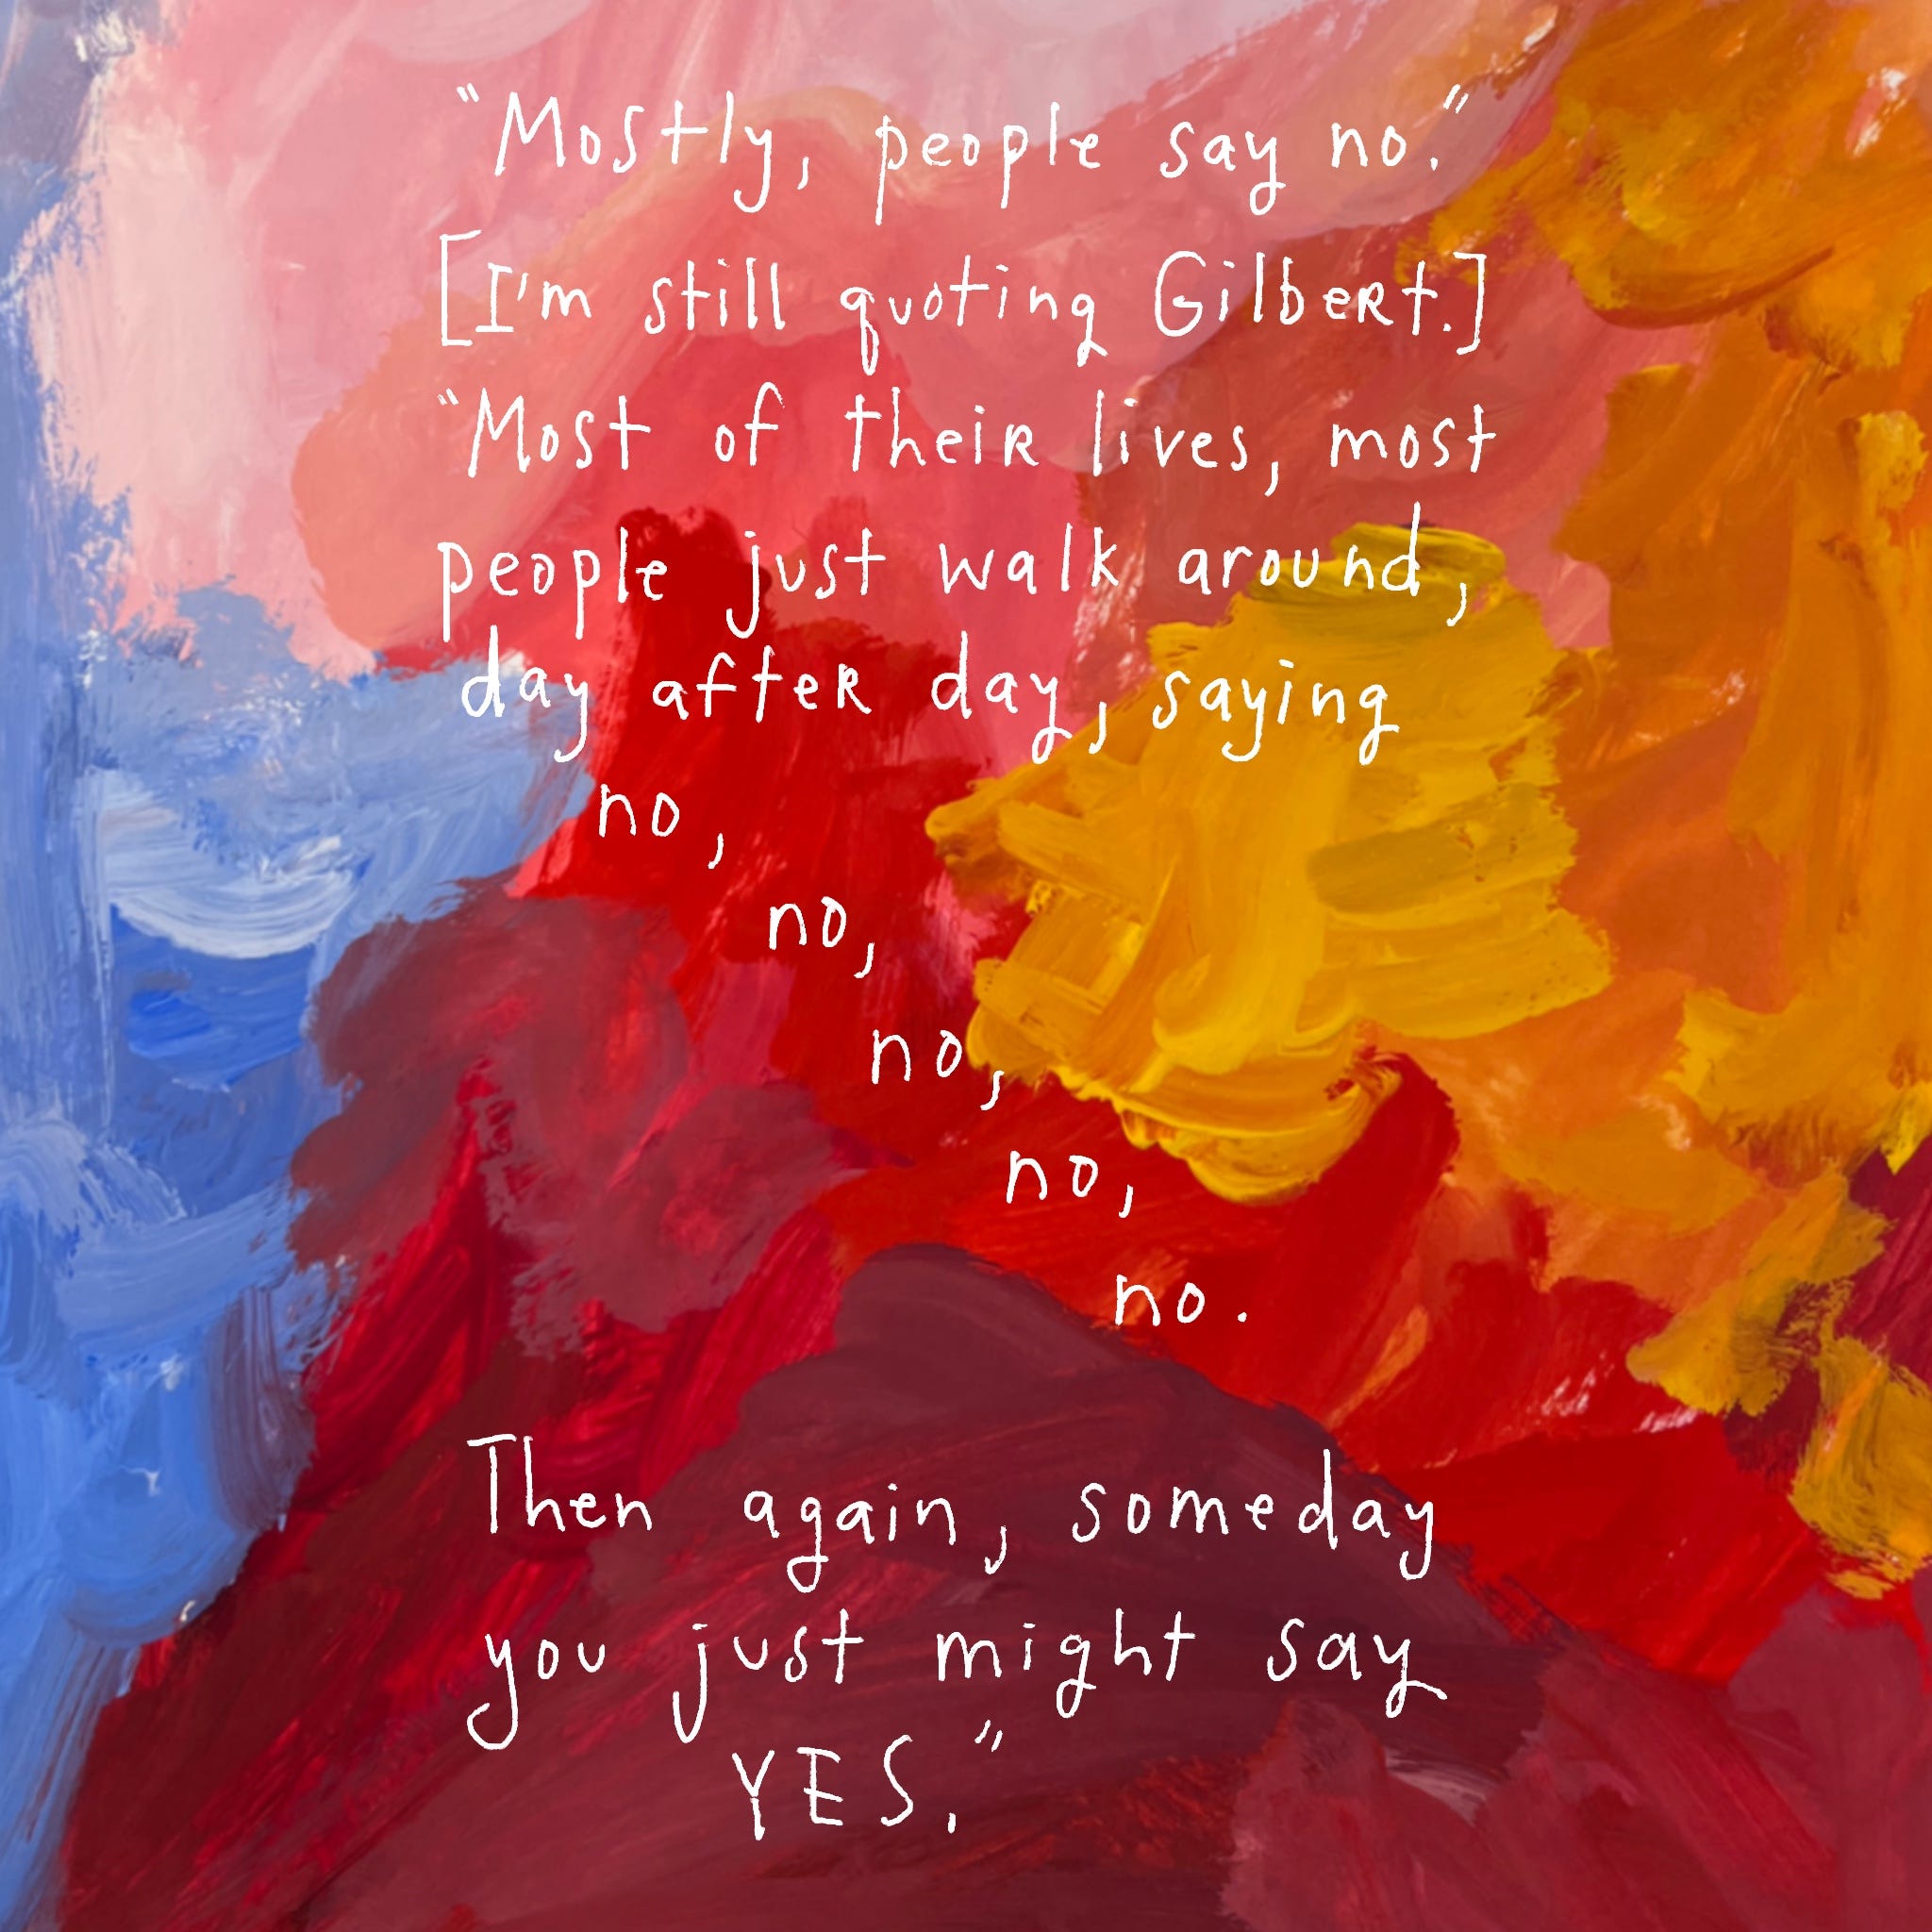 "Mostly, people say no."
[I'm still quoting Gilbert.]
"Most of their lives, most
people just walk around,
day after day, saying
no,
no,
no,
no,
no.
Then again, someday
you just might say
YES,"